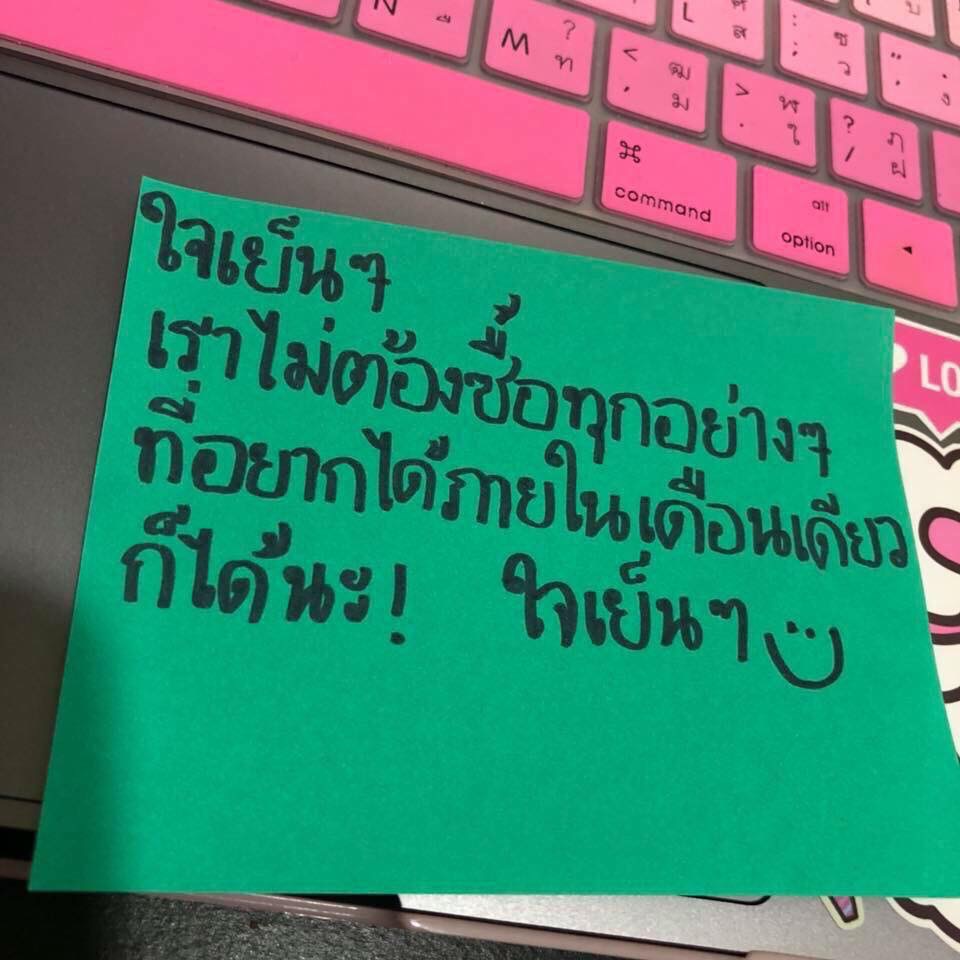 N
M ? ท
< ฒ , ม
> ฬ . ใ
? ฦ / ฝ
L ศ ส
: ซ ; ว
⌘ command
alt option
◄
ใจเย็นๆ
เราไม่ต้องซื้อทุกอย่างๆ
ที่อยากได้ภายในเดือนเดียว
ก็ได้นะ! ใจเย็นๆ
LO